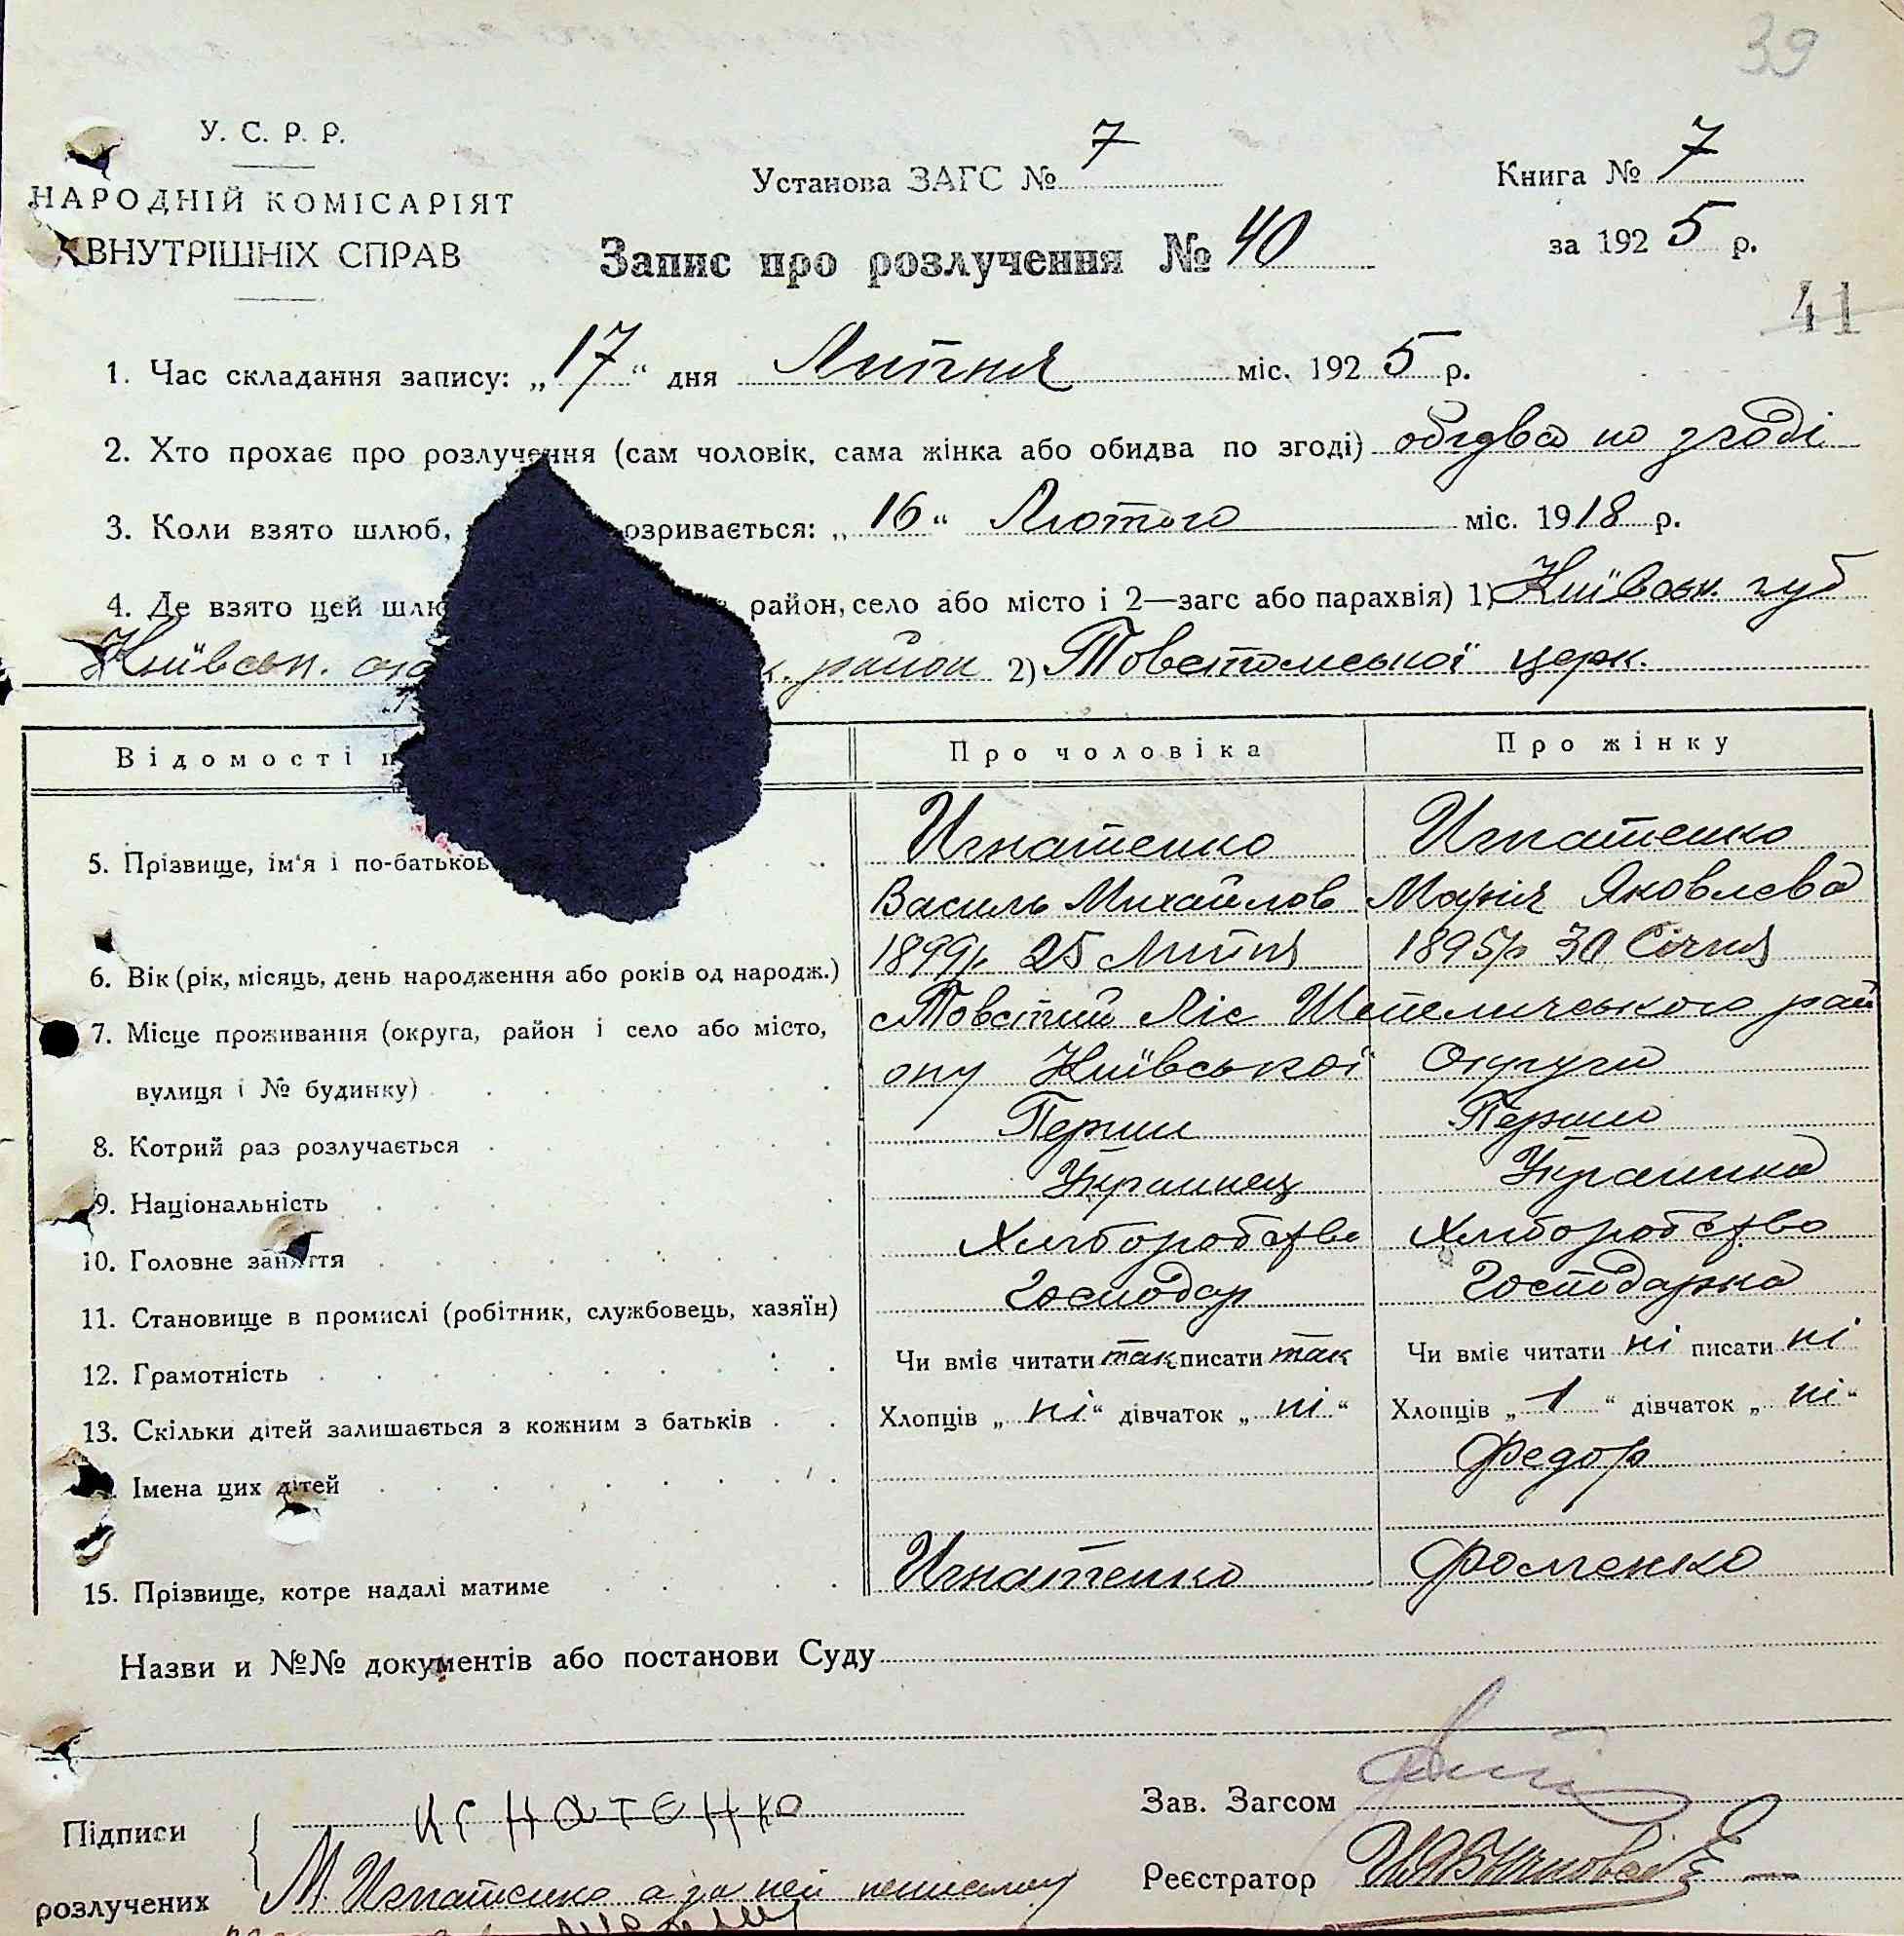 39
У. С. Р. Р.
НАРОДНІЙ КОМІСАРІЯТ
ВНУТРІШНІХ СПРАВ
Установа ЗАГС № 7
Книга № 7
за 1925 р.
Запис про розлучення № 40
41
1. Час складання запису: „17“ дня Липня міс. 1925 р.
2. Хто прохає про розлучення (сам чоловік, сама жінка або обидва по згоді) обидва по згоді
3. Коли взято шлюб, озривається: „16“ Лютого міс. 1918 р.
4. Де взято цей шлю район, село або місто і 2—загс або парахвія) 1) Київськ. губ
Київськ. район 2) Товстолеської церк.
Відомості Про чоловіка Про жінку
5. Прізвище, ім'я і по-батьков Игнатенко Игнатенко
Василь Михайлов Марія Яковлєва
6. Вік (рік, місяць, день народження або років од народж.) 1899р. 25 Липня 1895р 30 Січня
7. Місце проживання (округа, район і село або місто, с Товстий Ліс Шепелического рай
вулиця і № будинку) ону Київської Округи
8. Котрий раз розлучається Перши Перши
9. Національність Украинец Украинка
10. Головне заняття Хліборобство Хліборобство
11. Становище в промислі (робітник, службовець, хазяїн) Господар Господарка
12. Грамотність Чи вміє читати так писати так Чи вміє читати ні писати ні
13. Скільки дітей залишається з кожним з батьків Хлопців „ні“ дівчаток „ні“ Хлопців „1“ дівчаток „ні“
Імена цих дітей Федор
15. Прізвище, котре надалі матиме Игнатенко Фоменко
Назви и №№ документів або постанови Суду
Зав. Загсом
Підписи
розлучених
ИГНАТЕНКО
М. Игнатенко а за неи
Реєстратор